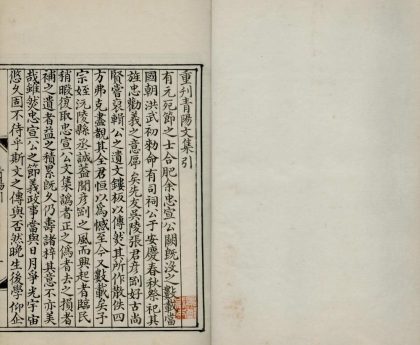 重刊青陽文集引
有元死節之士合肥余忠宣公闕既沒之數載當
國朝洪武初勅命有司祠公于安慶春秋祭祀其
旌忠勸義之意厚矣先友吳陵張君彥剛好古尚
賢嘗裒輯公之遺文鏤板以傳然其所作散佚四
方弗克盡觀其全君恒以為憾至今又數載矣子
宗姪沅陵縣丞誠益聞彥剛之風而興起者臨民
稍暇復取忠宣公文集譌者正之偽者去之損者
補之遺者益之積累既久仍壽諸梓其意不亦美
哉雖然忠宣公之節義政事當與日月爭光宇宙
悠久固不待乎斯文之傳與否然晚生後學仰企